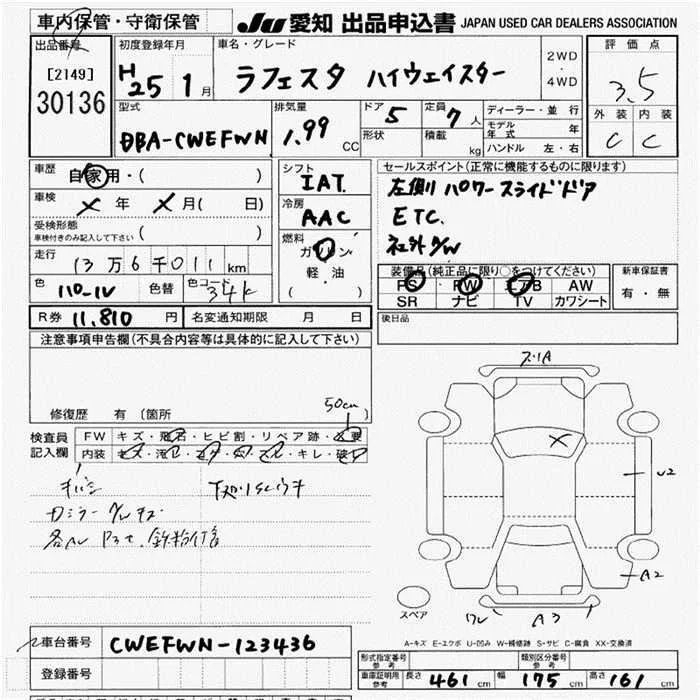 車内保管・守衛保管
JU 愛知 出品申込書 JAPAN USED CAR DEALERS ASSOCIATION
出品番号 初度登録年月 車名・グレード 評価点
[2149]
30136
H25 1月
ラフェスタ ハイウェイスター
2WD
・
4WD
3.5
型式 排気量 ドア 定員
DBA-CWEFWN 1.99 CC
5 7人
形状 積載 kg
ディーラー・並行
モデル年式 年
ハンドル 左・右
外装 内装
C C
車歴 自家用・( )
車検 × 年 × 月( 日)
受検形態
車検付きのみ記入して下さい ( )
走行 13万6千011km
色 色替 色コード 34K
シフト
IAT
冷房
AAC
燃料
ガソリン
軽・油
( )
セールスポイント(正常に機能するものに限ります)
左側 パワースライドドア
ETC.
社外A/W
装備品(純正品に限り○をつけてください) 新車保証書
PS PW エアB AW
SR ナビ TV カワシート
有・無
R券 11,810 円 名変通知期限 月 日
後日品
注意事項申告欄(不具合内容等は具体的に記入して下さい)
修復歴 有 (箇所 )
50cm
検査員記入欄
FW キズ・飛石・ヒビ割・リペア跡・交要
内装 キズ・汚レ・コゲ・穴・スレ・キレ・破レ
キバミ
カミラーグレキズ
ズリA
×
U2
A2
A3
スペア
A-キズ E-エクボ U-凹み W-補修跡 S-サビ C-腐食 XX-交換済
車台番号 CWEFWN-123436
登録番号
形式指定番号 参考 類別区分番号 参考
車庫証明用 参考 長さ 461cm 幅 175cm 高さ 161cm